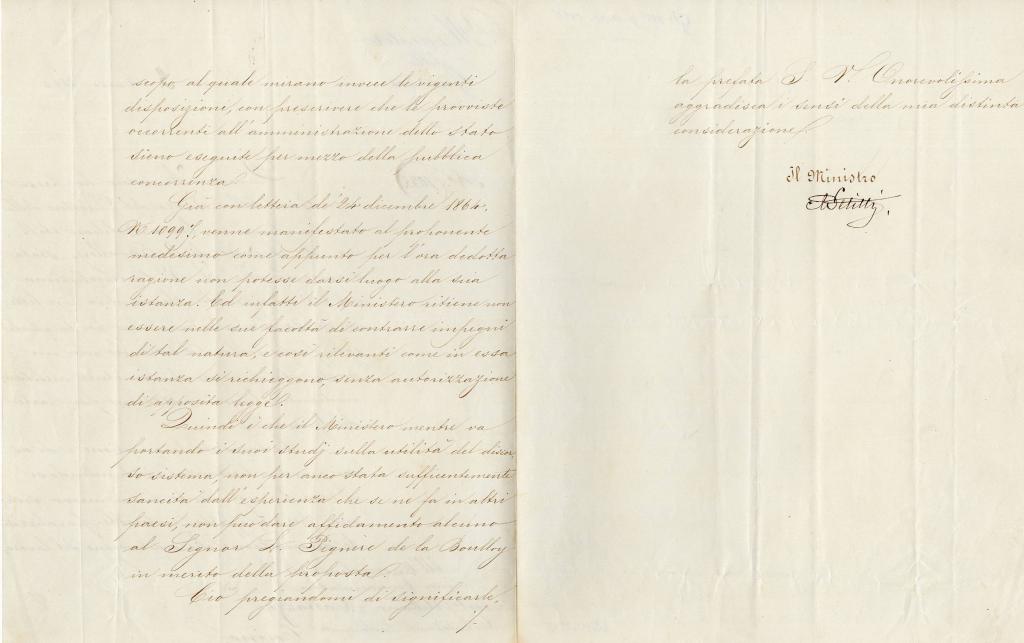 scopo, al quale mirano invece le vigenti
disposizioni, con prescrivere che le provviste
occorrenti all'amministrazione dello stato
sieno eseguite per mezzo della pubblica
concorrenza.
Già con lettera de' 24 dicembre 1864.
N. 1099, venne manifestato al proponente
medesimo come appunto per l'ora dedotta
ragione non potesse darsi luogo alla sua
istanza. Ed infatti il Ministero ritiene non
essere nelle sue facoltà di contrarre impegni
di tal natura, e così rilevanti come in essa
istanza si richieggono, senza autorizzazione
di apposita legge.
Quindi è che il Ministero mentre va
portando i suoi studj sulla utilità del discor-
so sistema, non per anco stata sufficentemente
sancita dall'esperienza che se ne fa in altri
paesi, non può dare affidamento alcuno
al Signor de la Boulloy
in merito della proposta.
Ciò pregiandomi di significarle,
la prefata S. V. Onorevolissima
aggradisca i sensi della mia distinta
considerazione.
Il Ministro